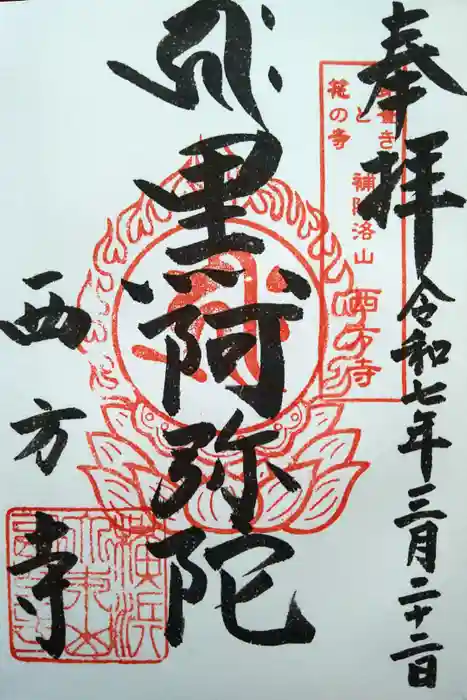 奉拝
令和七年三月二十二日
葺き
と
花の寺
補陀洛山
西方寺
黒阿弥陀
西方寺
横浜